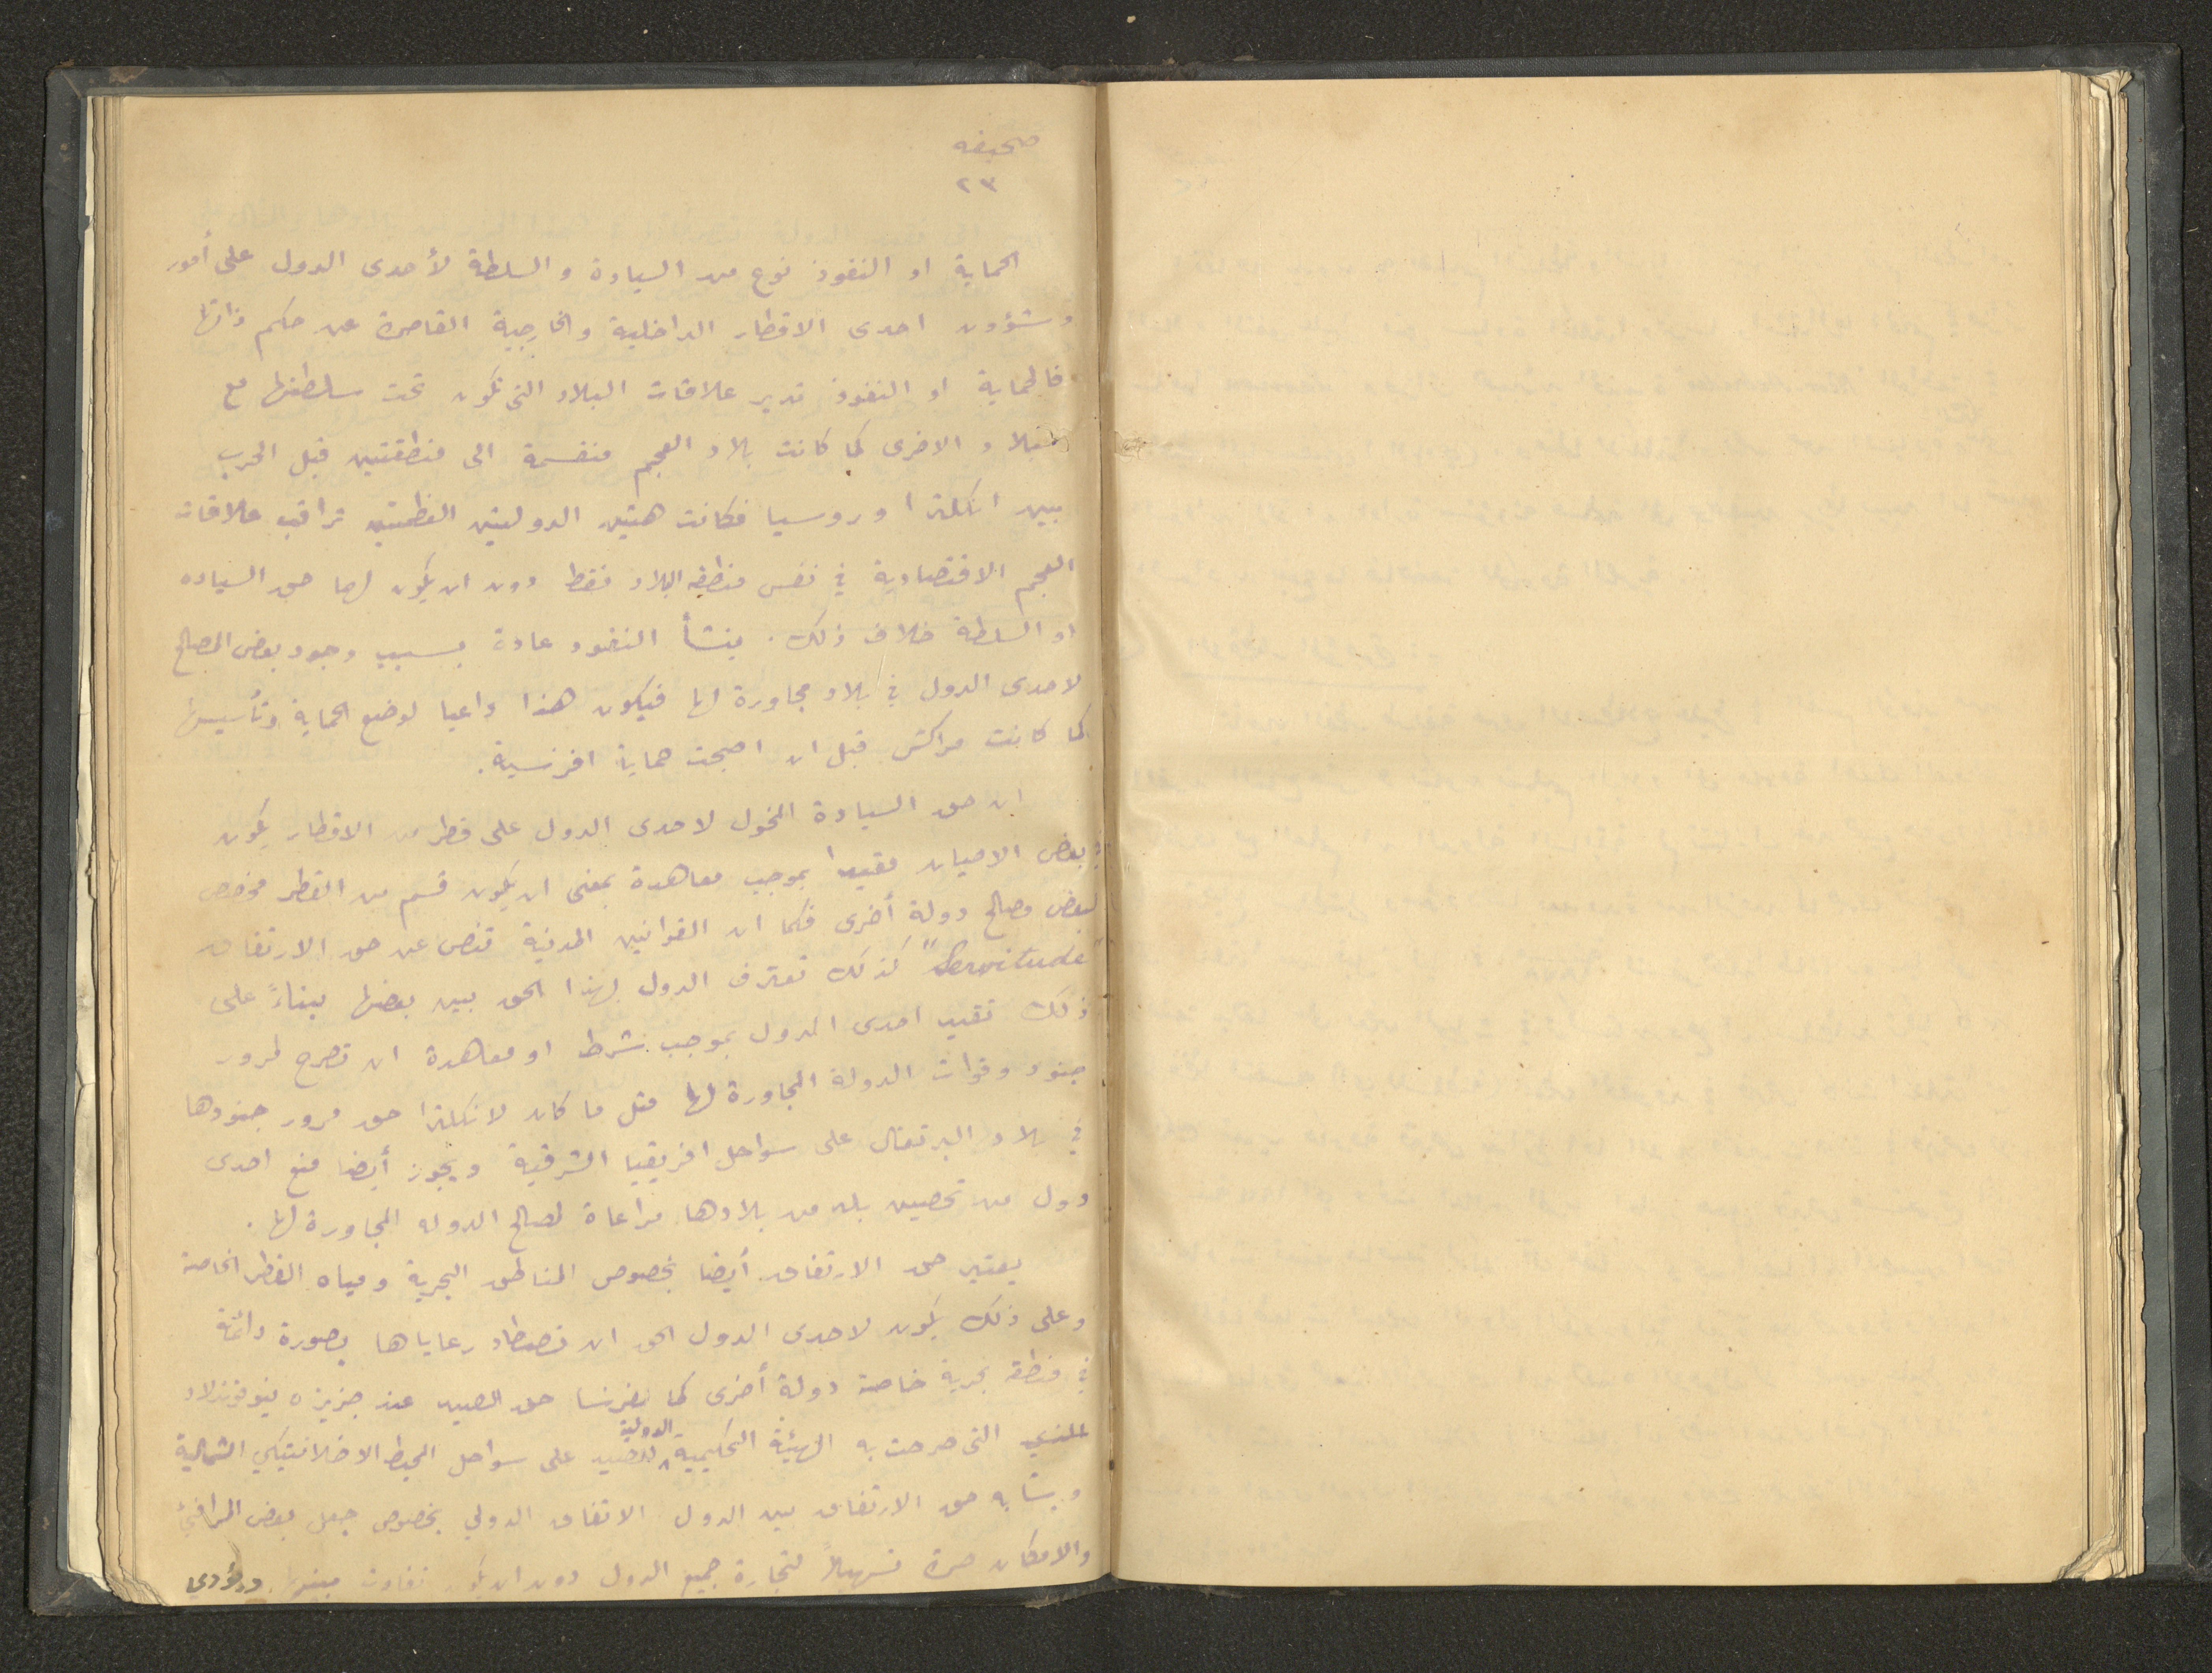 صحيفه
٢٣
الحماية او النفوذ نوع من السيادة والسلطة لأحدى الدول على أمور
وشؤون احدى الاقطار الداخلية والخارجية القاصرة عن حكم ذاتها
فالحماية او النفوذ تدير علاقات البلاد التي تكون تحت سلطتها مع
البلاد الاخرى كما كانت بلاد العجم منقسمة الى منطقتين قبل الحرب
بين انكلترا وروسيا فكانت هتين الدولتين العظمتين تراقب علاقات
العجم الاقتصادية في نفس منطقه البلاد فقط دون ان يكون لهما حق السياده
او السلطة خلاف ذلك. ينشأ النفوذ عادة بسبب وجود بعض المصالح
لاحدى الدول في بلاد مجاورة لها فيكون هذا داعيا لوضع الحماية وتأسيسها
كما كانت مراكش قبل ان اصبحت حماية افرنسية.
ان حق السيادة المخول لاحدى الدول على قطر من الاقطار يكون
في بعض الاحيان مقيدا بموجب معاهدة بمعنى ان يكون قسم من القطر مخصص
لبعض مصالح دولة أخرى فكما ان القوانين المدنية تنص عن حق الارتفاق
"Servitude" كذلك تعترف الدول بهذا الحق بين بعضها بناءً على
ذلك تقيد احدى الدول بموجب شرط او معاهدة ان تصرح لمرور
جنود وقوات الدولة المجاورة لها مثل ما كان لانكلترا حق مرور جنودها
في بلاد البرتغال على سواحل افريقيا الشرقية ويجوز أيضا منع احدى
دول من تحصين بلد من بلادها مراعاة لصالح الدوله المجاورة لها.
يعتبر حق الارتفاق أيضا بخصوص المناطق البحرية ومياه القطر الخاصة
وعلى ذلك يكون لاحدى الدول الحق ان تصطاد رعاياها بصورة دائمة
في منطقة بحرية خاصة دولة أخرى كما لفرنسا حق الصيد عند جزيزه نيوفوندلاند
التي صرحت به الهيئة التحكيمية الدولية للصيد على سواحل المحيط الاطلانتيكي الشمالية
ويشابه حق الارتفاق بين الدول الاتفاق الدولي بخصوص جعل بعض المرافئ
والامكان حرة تسهيلاً لتجارة جميع الدول دون ان يكون تفاوت بينها ويؤدي